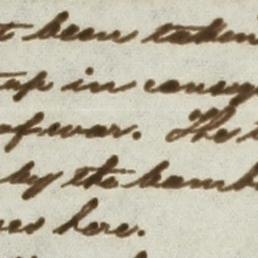 t been taken
up in conseq
of war. The
by the bomb
here.